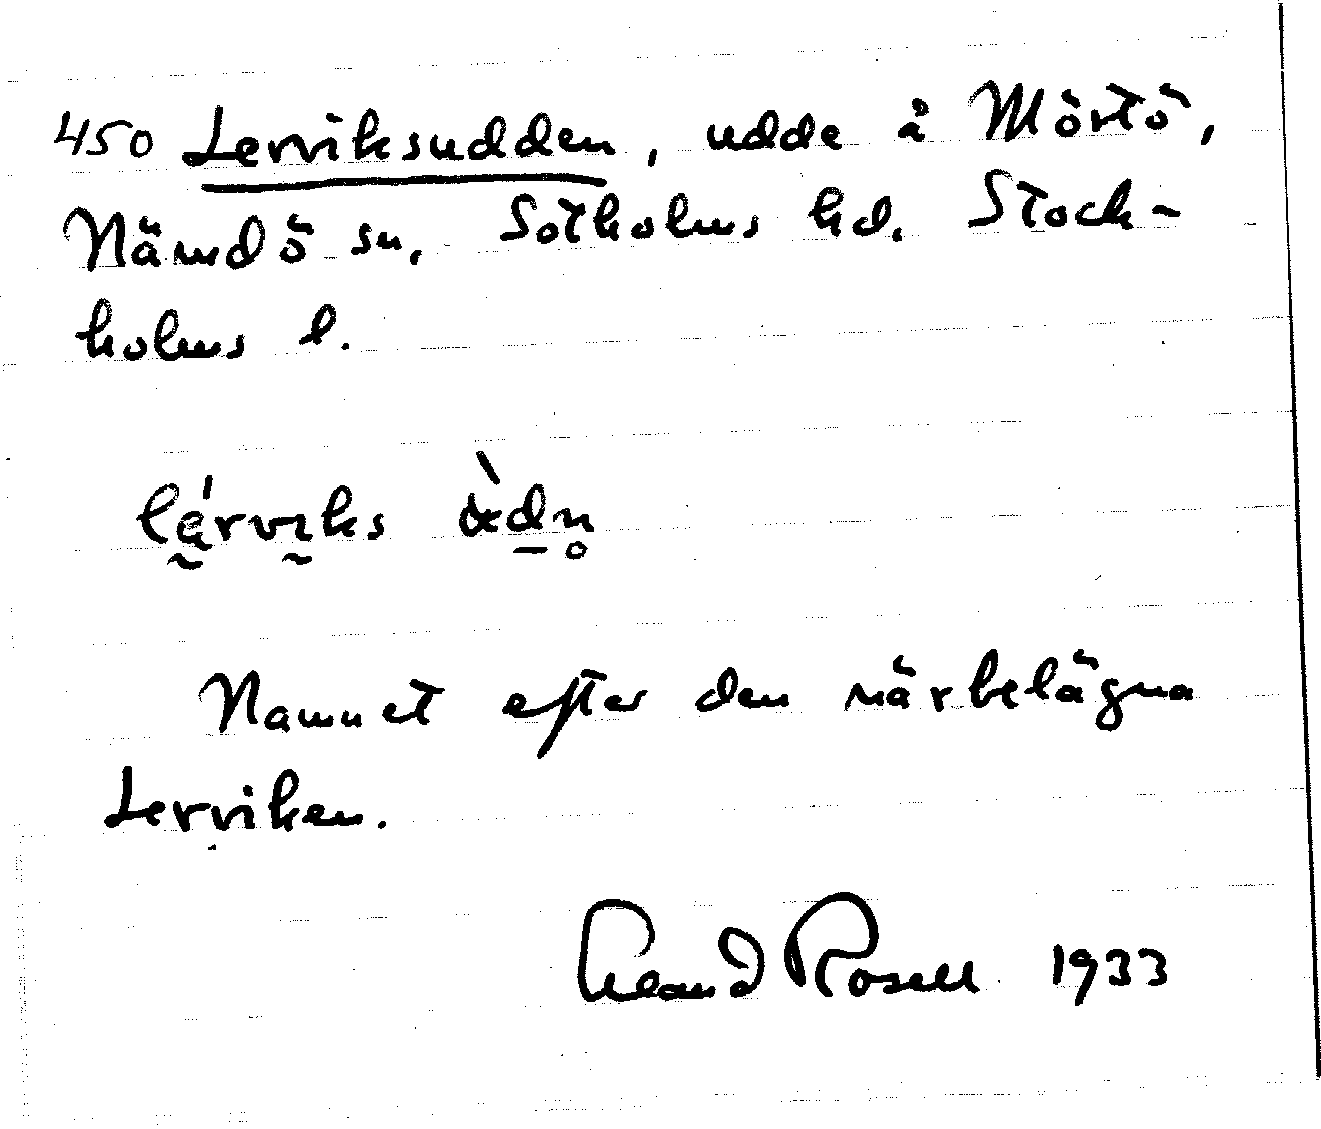 450 Lerviksudden, udde å Mörtö,
Nämdö sn, Sotholms hd. Stock-
holms l.
lę́rvɪ̰ks ὰd̲n̥
Namnet efter den närbelägna
Lerviken.
Rosell 1933